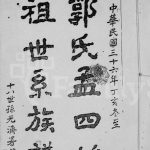 中華民國三十六年丁亥冬至
郭氏孟四
祖世系族譜
十八世孫元濟署